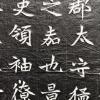 郡太守
之嘉也
史領袖